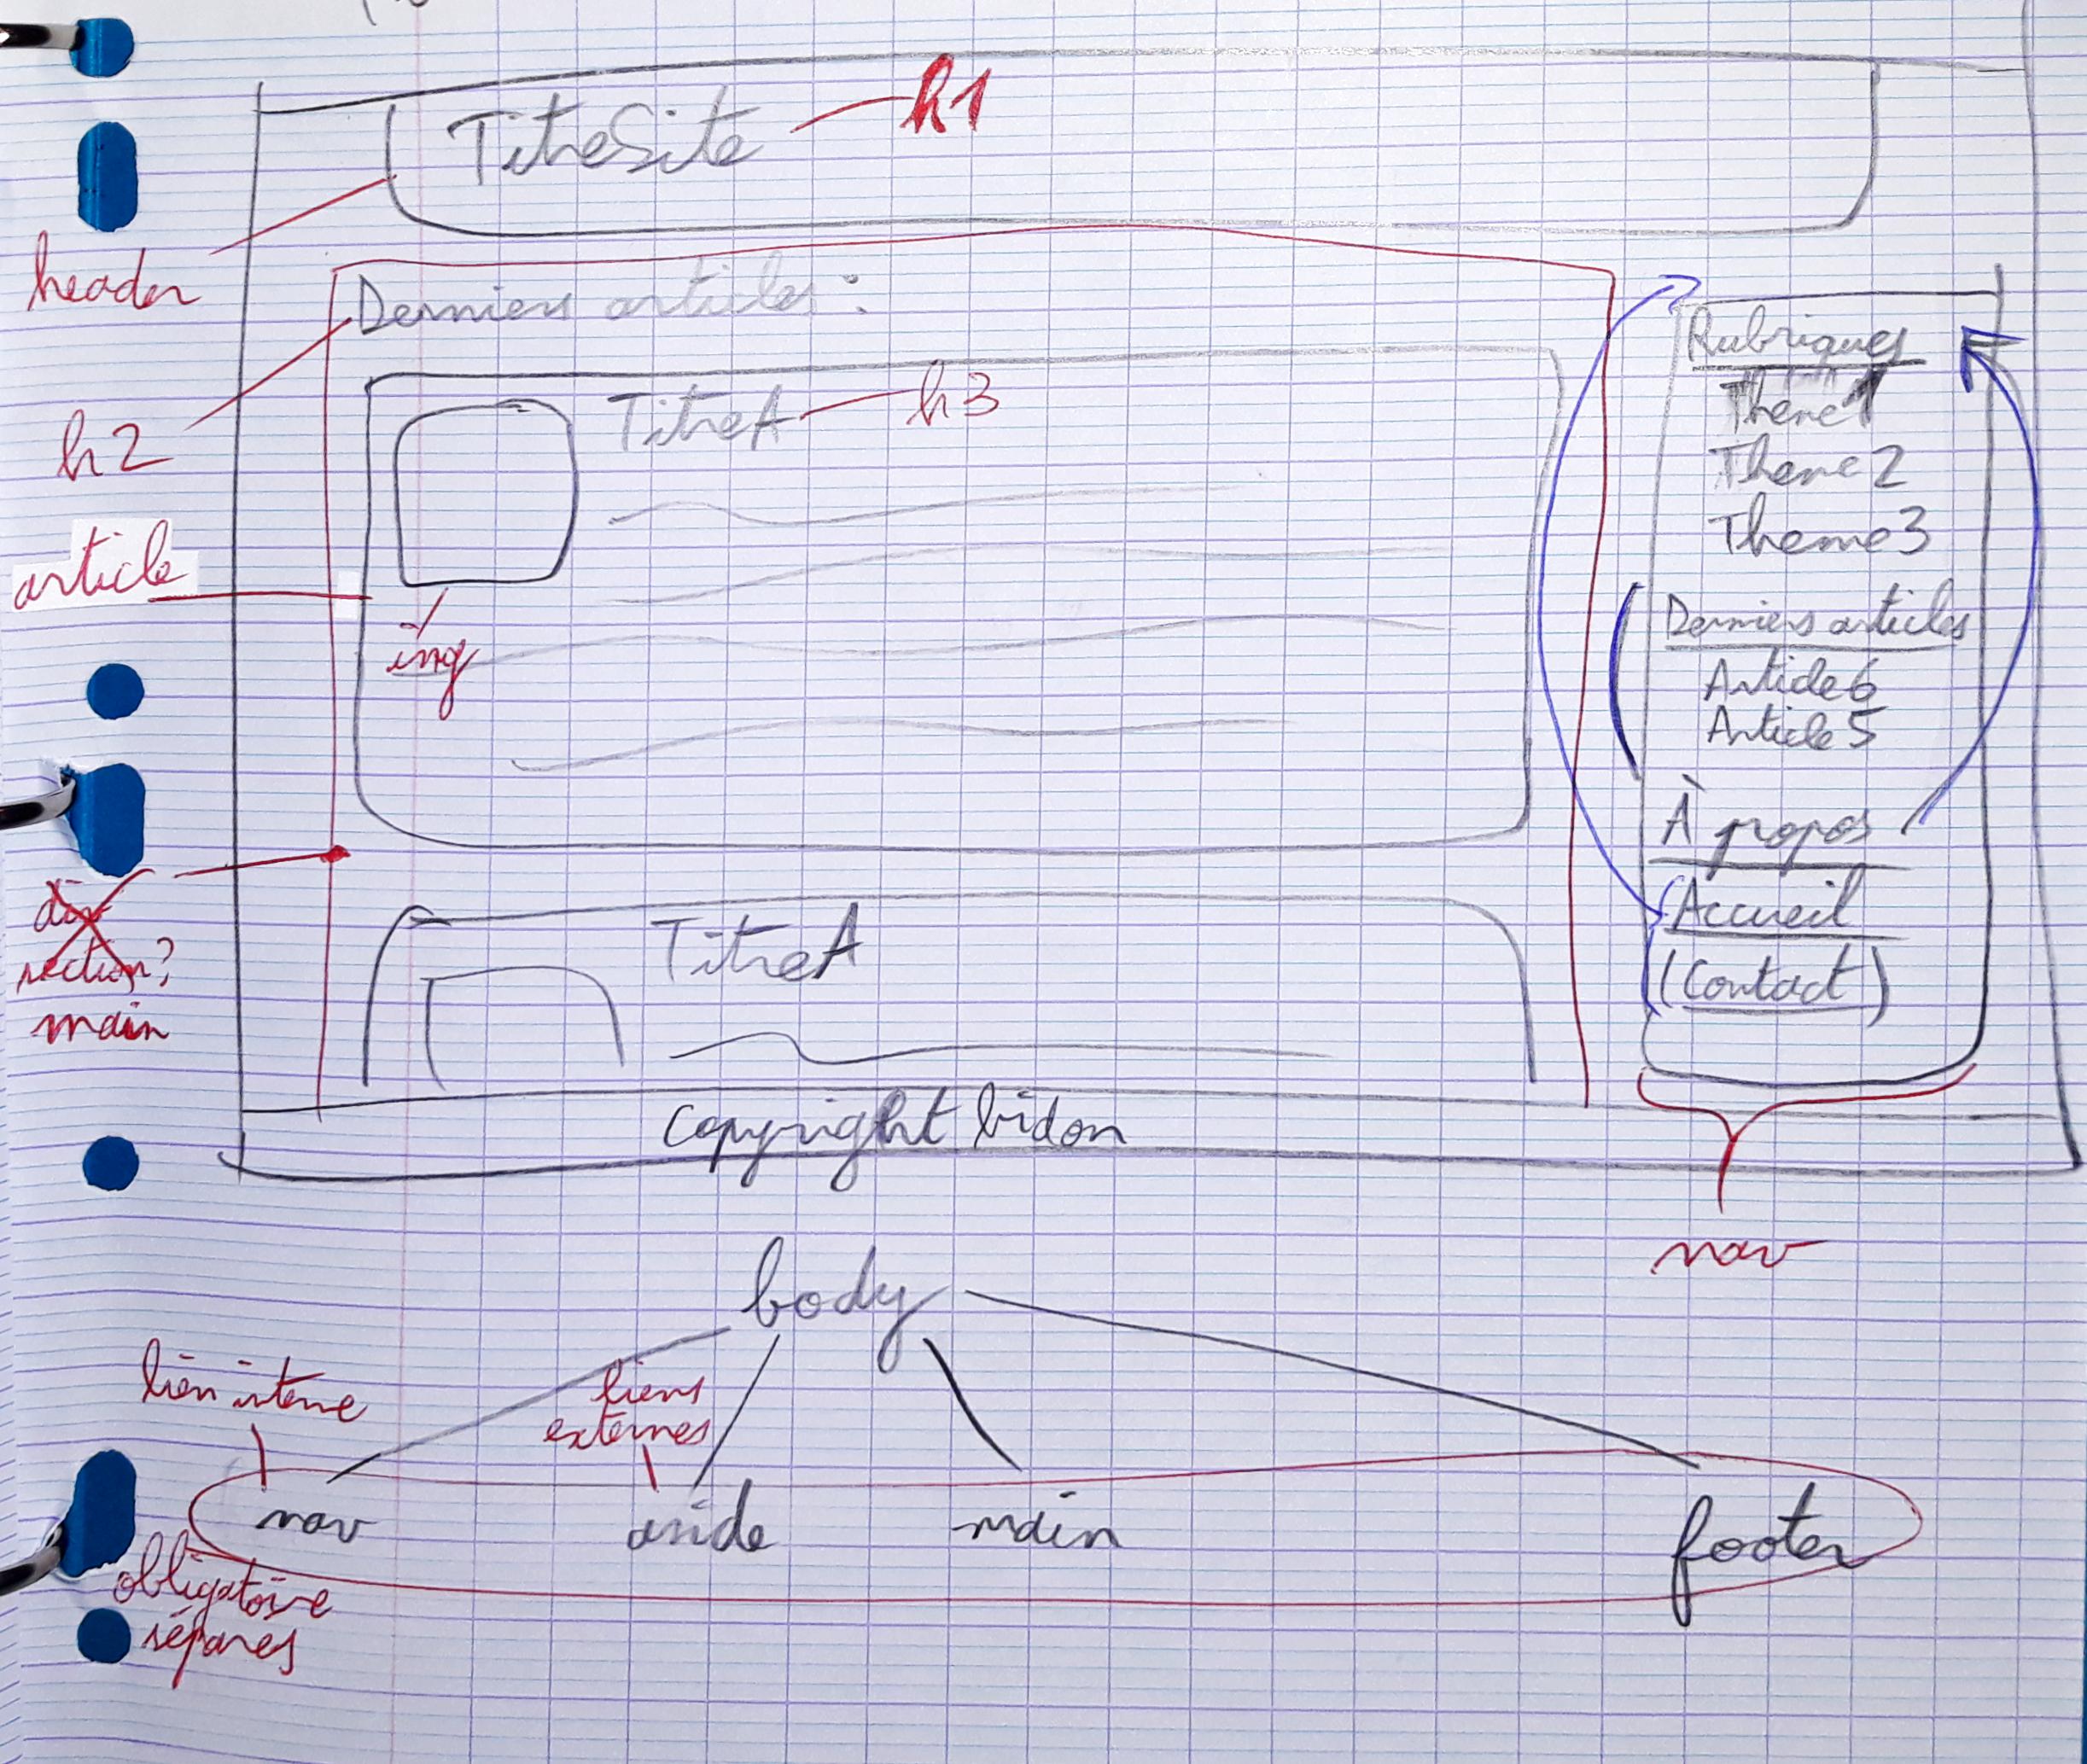 TitreSite h1
header
Derniers articles :
h2
TitreA h3
article
img
div
section?
main
TitreA
Copyright bidon
Rubriques
Theme1
Theme2
Theme3
(Derniers articles
Article6
Article5
À propos
Accueil
(Contact)
nav
body
lien interne
liens
externes
nav aside main footer
obligatoire
séparés